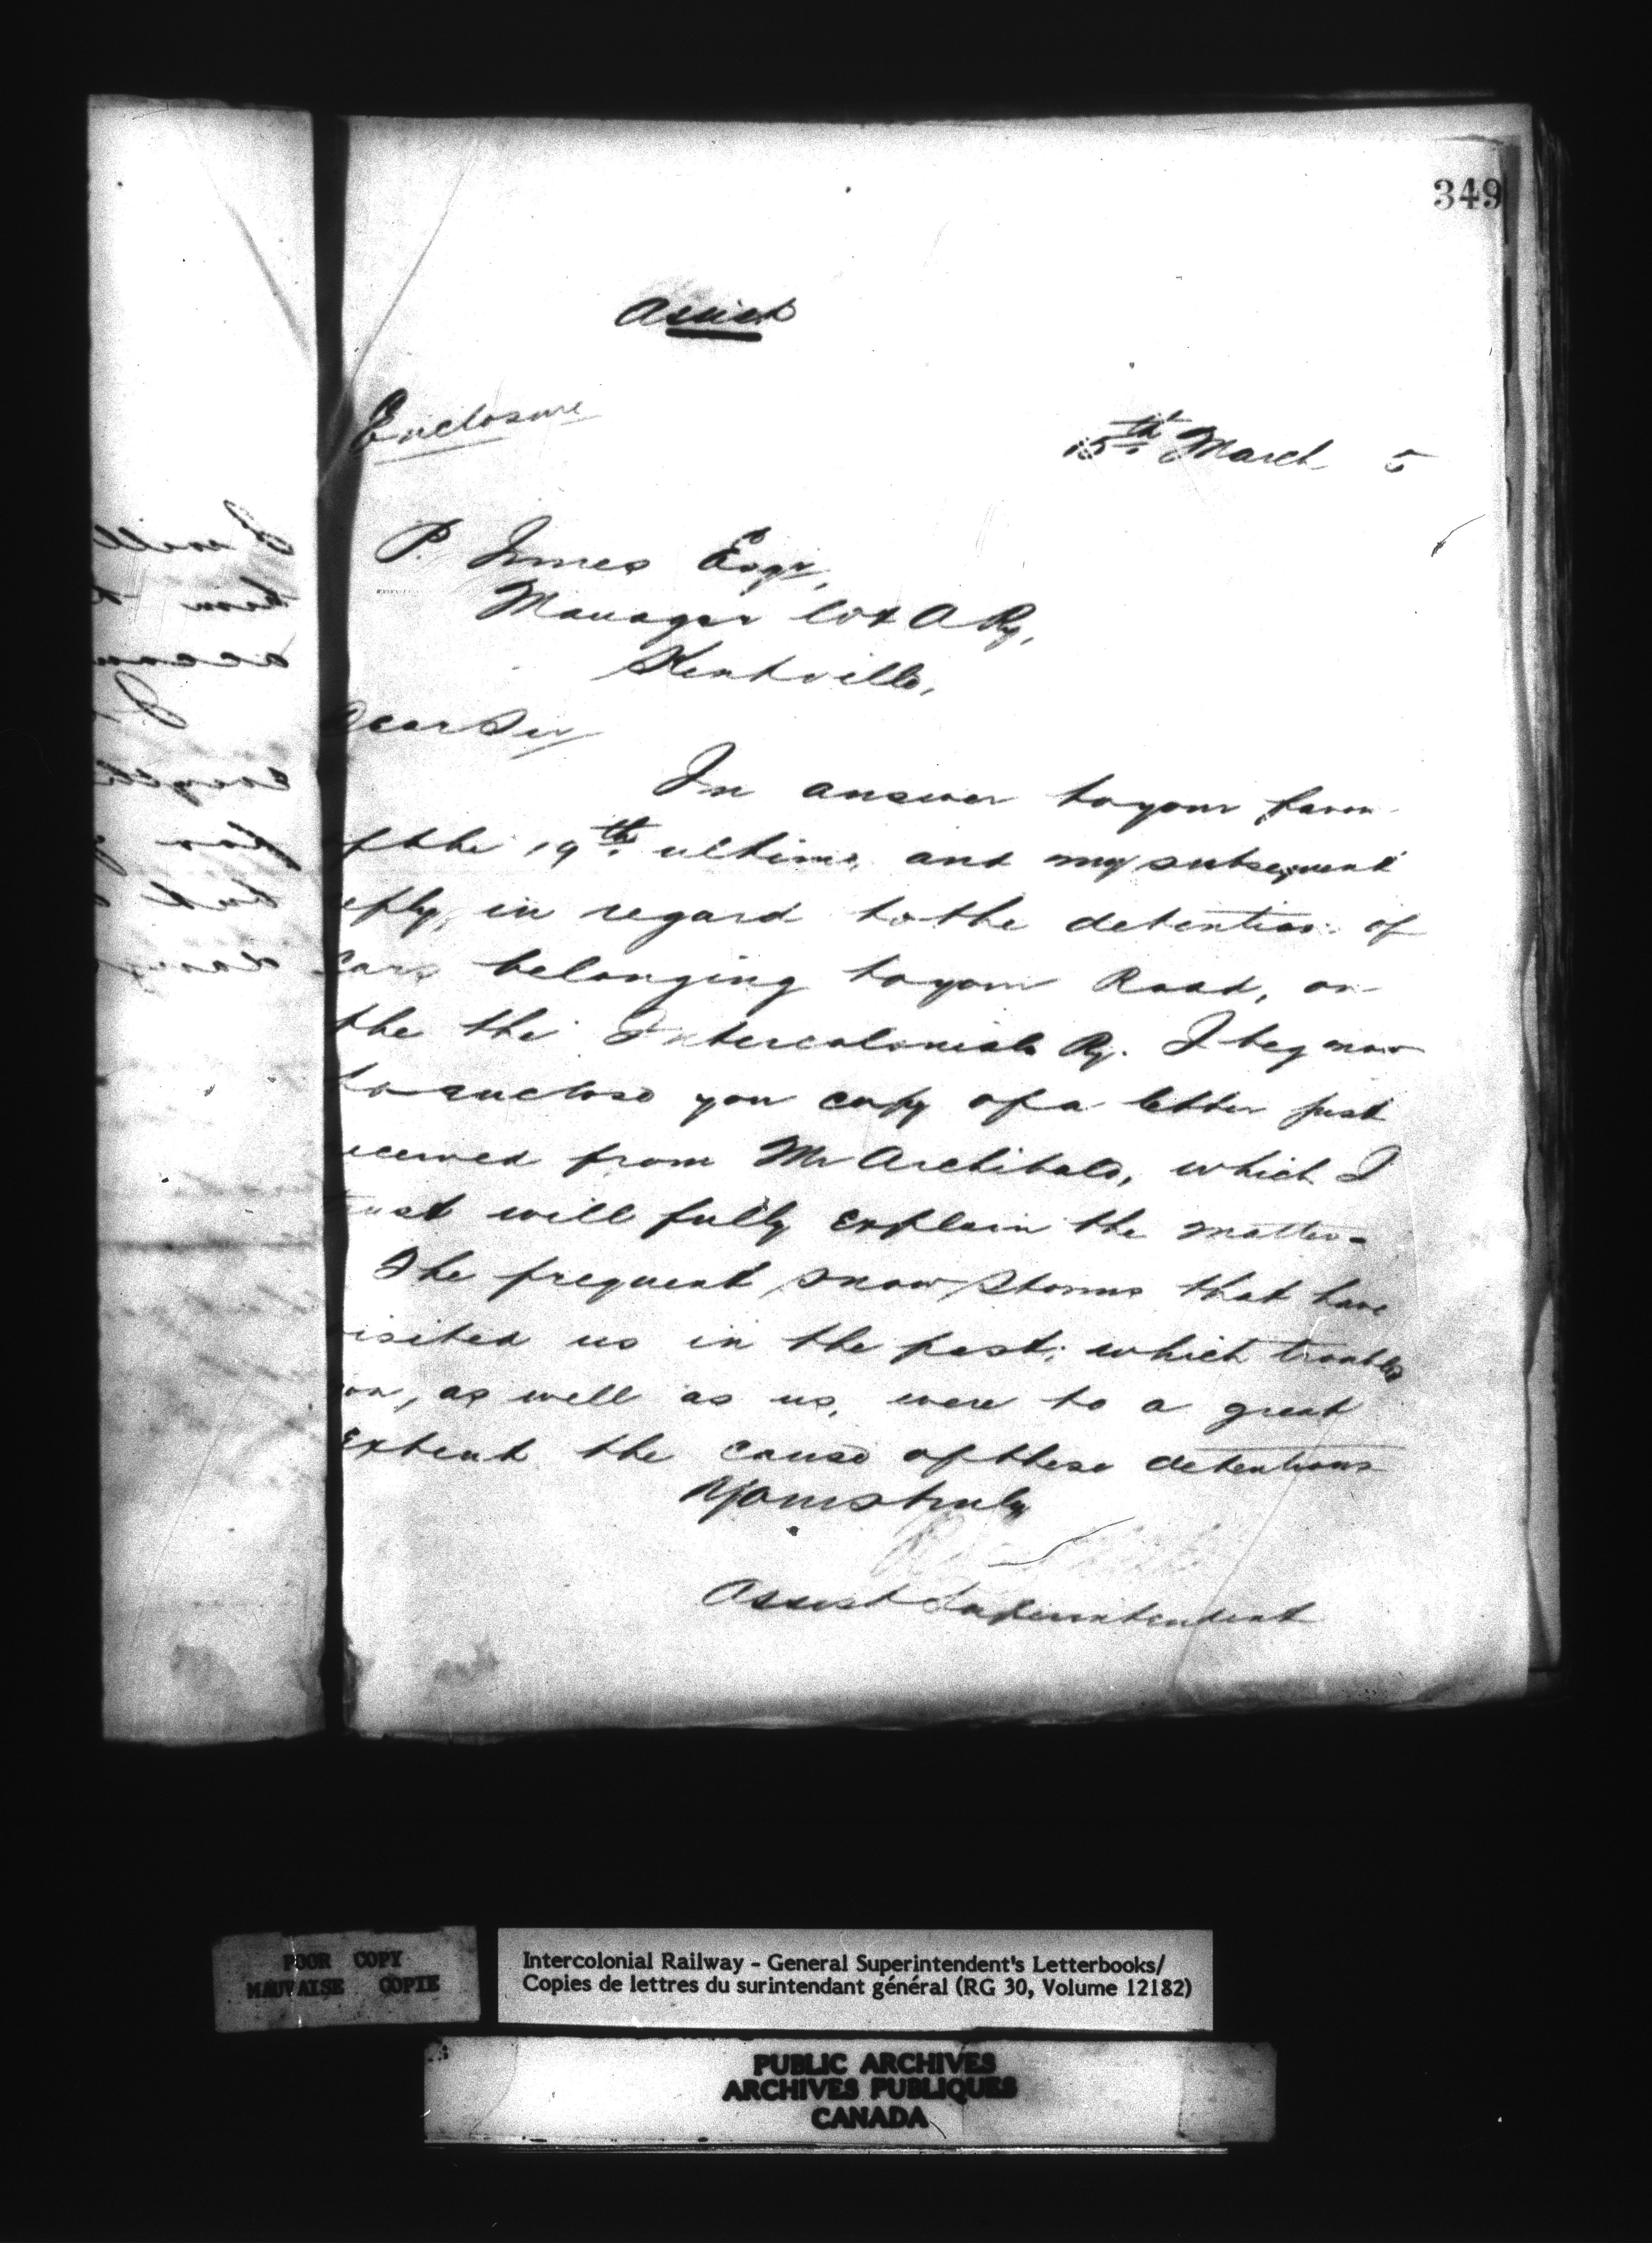 349
Assist
Enclosure
15th March 5
P. Innes Esqr,
Manager W & A Ry,
Kentville,
Dear Sir
In answer to your favor
of the 19th ultimo, and my subsequent
reply, in regard to the detention of
Cars belonging to your Road, on
the the Intercolonial Ry. I beg now
to enclose you copy of a letter just
received from Mr Archibald, which I
trust will fully explain the matter.
The frequent snow storms that have
visited us in the past, which troubled
you, as well as us, were to a great
extent the cause of these detentions
Yours truly
Assist Superintendent
I will
him
for
but
POOR COPY
MAUVAISE COPIE
Intercolonial Railway - General Superintendent's Letterbooks/
Copies de lettres du surintendant général (RG 30, Volume 12182)
PUBLIC ARCHIVES
ARCHIVES PUBLIQUES
CANADA